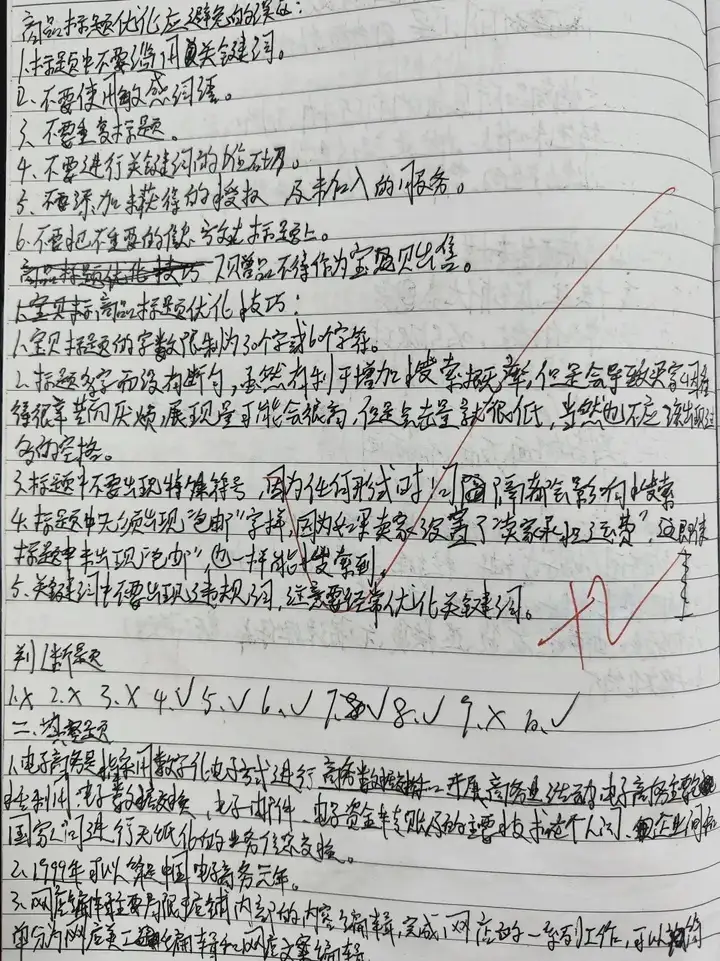 商品标题优化应避免的误区:
1.标题中不要滥用关键词。
2、不要使用敏感词语。
3、不要重复标题。
4、不要进行关键词的堆砌。
5、不要添加未获得的授权及未加入的服务。
6、不要把不重要的信息放在标题上。
商品标题优化技巧 赠品不得作为宝贝出售。
商品标题优化技巧:
1、宝贝标题的字数限制为30个字或60个字符。
2、标题多字而没有断句,虽然有利于增加搜索概率,但是会导致买家因阅
读很辛苦而厌烦,展现量可能会很高,但是点击量就很低,当然也不应该出现过
多的空格。
3、标题中不要出现特殊符号,因为任何形式时!间隔都会影响搜索
4、标题中无须出现"包邮"字样,因为如果卖家设置了"卖家承担运费",这即使
标题中未出现"包邮",也一样能搜索到。
5、关键词中不要出现违规词,注意要经常优化关键词。
判断题
1.X 2.X 3.X 4.√ 5.√ 6.√ 7.√ 8.√ 9.X 10.√
二、填空题
1、电子商务是指采用数字化电子方式进行商务数据交换和开展商务业务活动,电子商务主要
利用电子数据交换、电子邮件、电子资金转账等的主要技术在个人间、企业间和
国家间进行无纸化的业务信息交换。
2、1999年可以算是中国电子商务元年。
3、网店编辑主要局限店铺内部的内容编辑,完成网店的一系列工作,可以
单分为网店美工编辑和网店文案编辑。